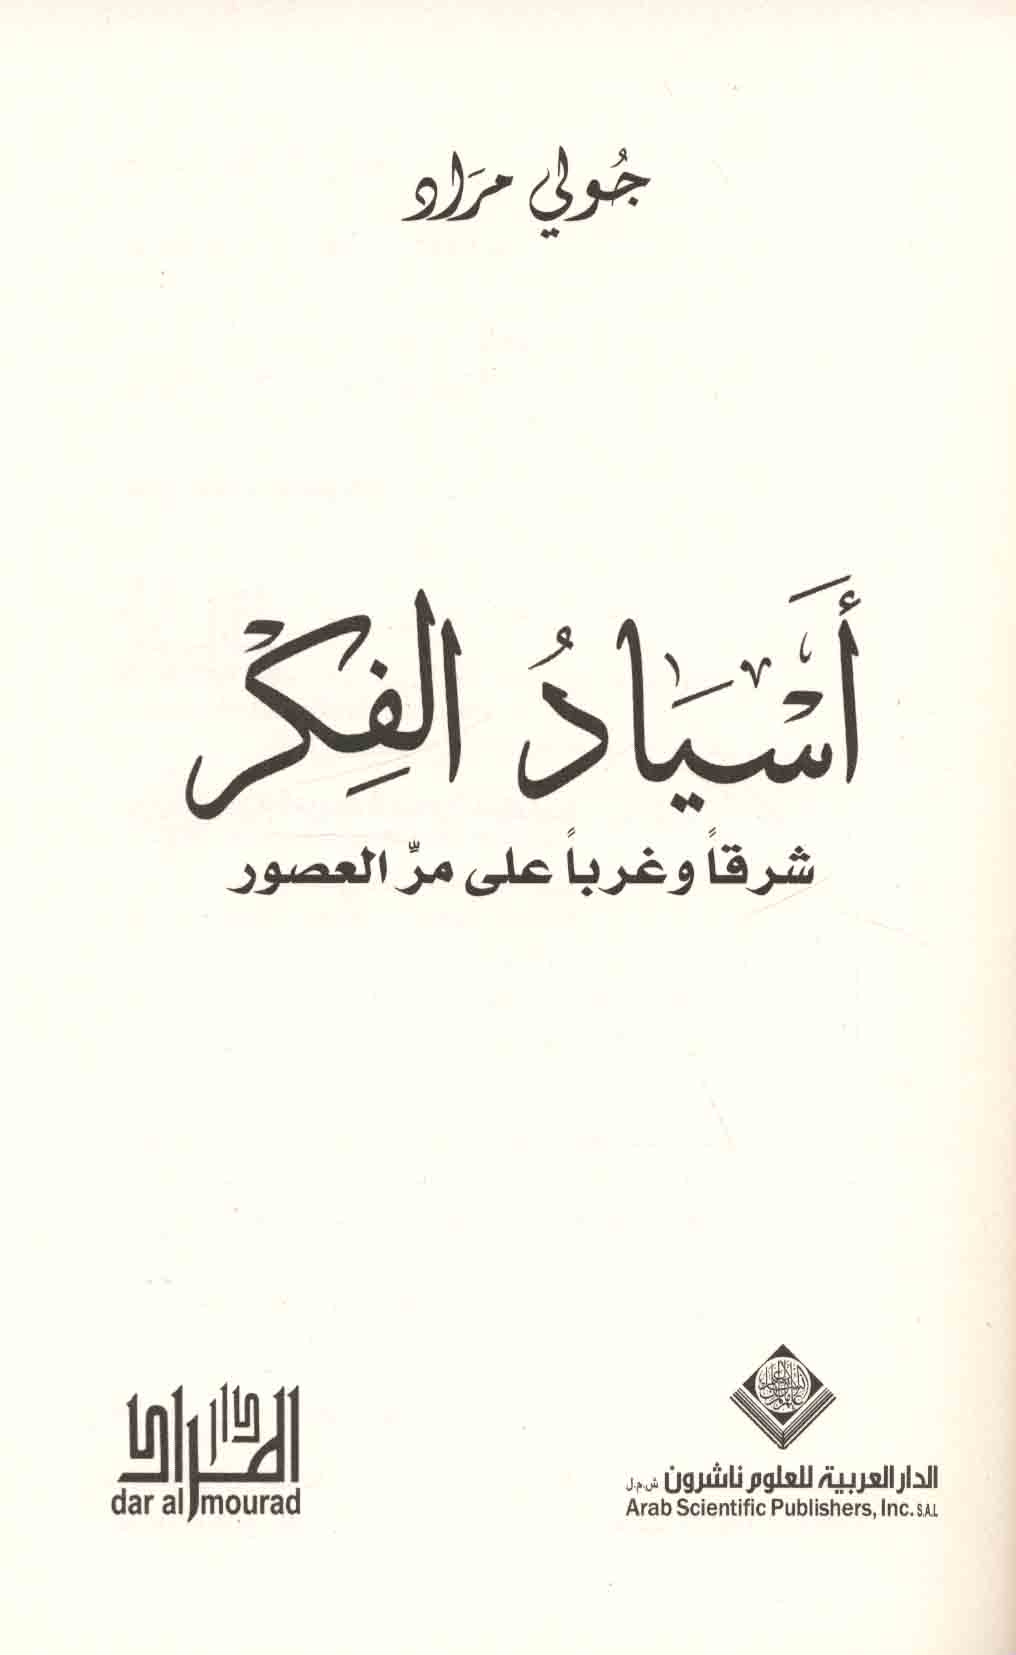 جُولي مرَاد
أَسْيَادُ الفِكْر
شرقاً وغرباً على مرِّ العصور
دار المراد
dar al mourad
الدار العربية للعلوم ناشرون ش.م.ل
Arab Scientific Publishers, Inc. S.A.L